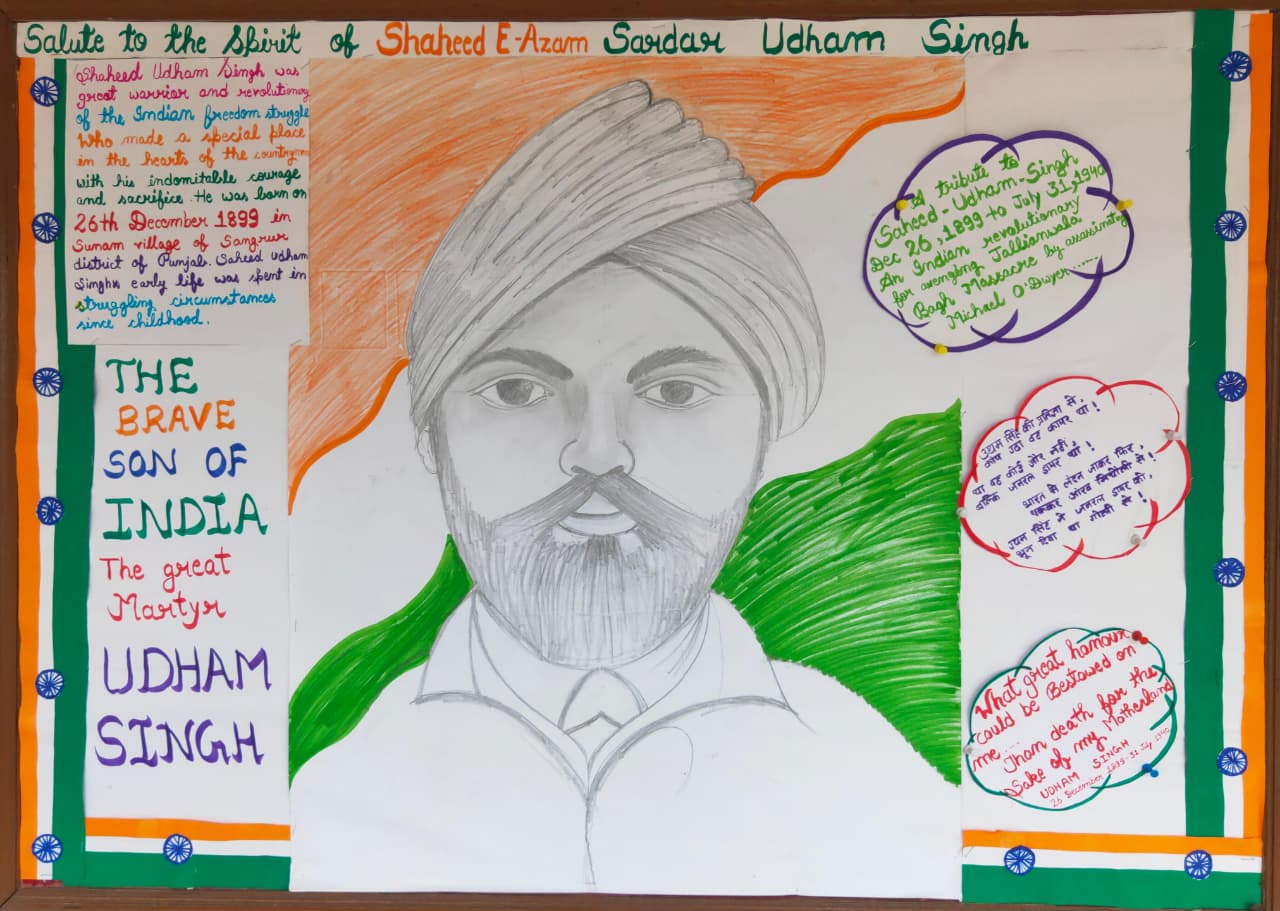 Salute to the Spirit of Shaheed E-Azam Sardar Udham Singh
Shaheed Udham Singh was
great warrior and revolutionary
of the Indian freedom struggle
who made a special place
in the hearts of the
with his indomitable courage
and sacrifice. He was born on
26th December 1899 in
Sunam village of Sangrur
district of Punjab. Saheed Udham
Singh's early life was spent in
struggling circumstances
since childhood.
THE
BRAVE
SON OF
INDIA
The great
Martyr
UDHAM
SINGH
A tribute to
Saheed-Udham-Singh
Dec 26, 1899 to July 31, 1940
An Indian revolutionary
for avenging Jallianwala
Bagh Massacre by assasinating
Michael O'Dwyer......
उधम सिंह की प्रतिज्ञा से,
कांप उठा वह कायर था!
था वह कोई और नहीं,
बल्कि जनरल डायर था!
भारत से लंदन जाकर फिर,
सिंह ने जनरल डायर को,
भून दिया था गोली से!
What great hanour
could be Bestowed on
me... Than death for the
Sake of my Motherland
UDHAM SINGH
26 December 1899-31 July 1940